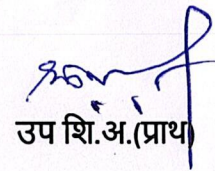 उप शि.अ.(प्राथ)